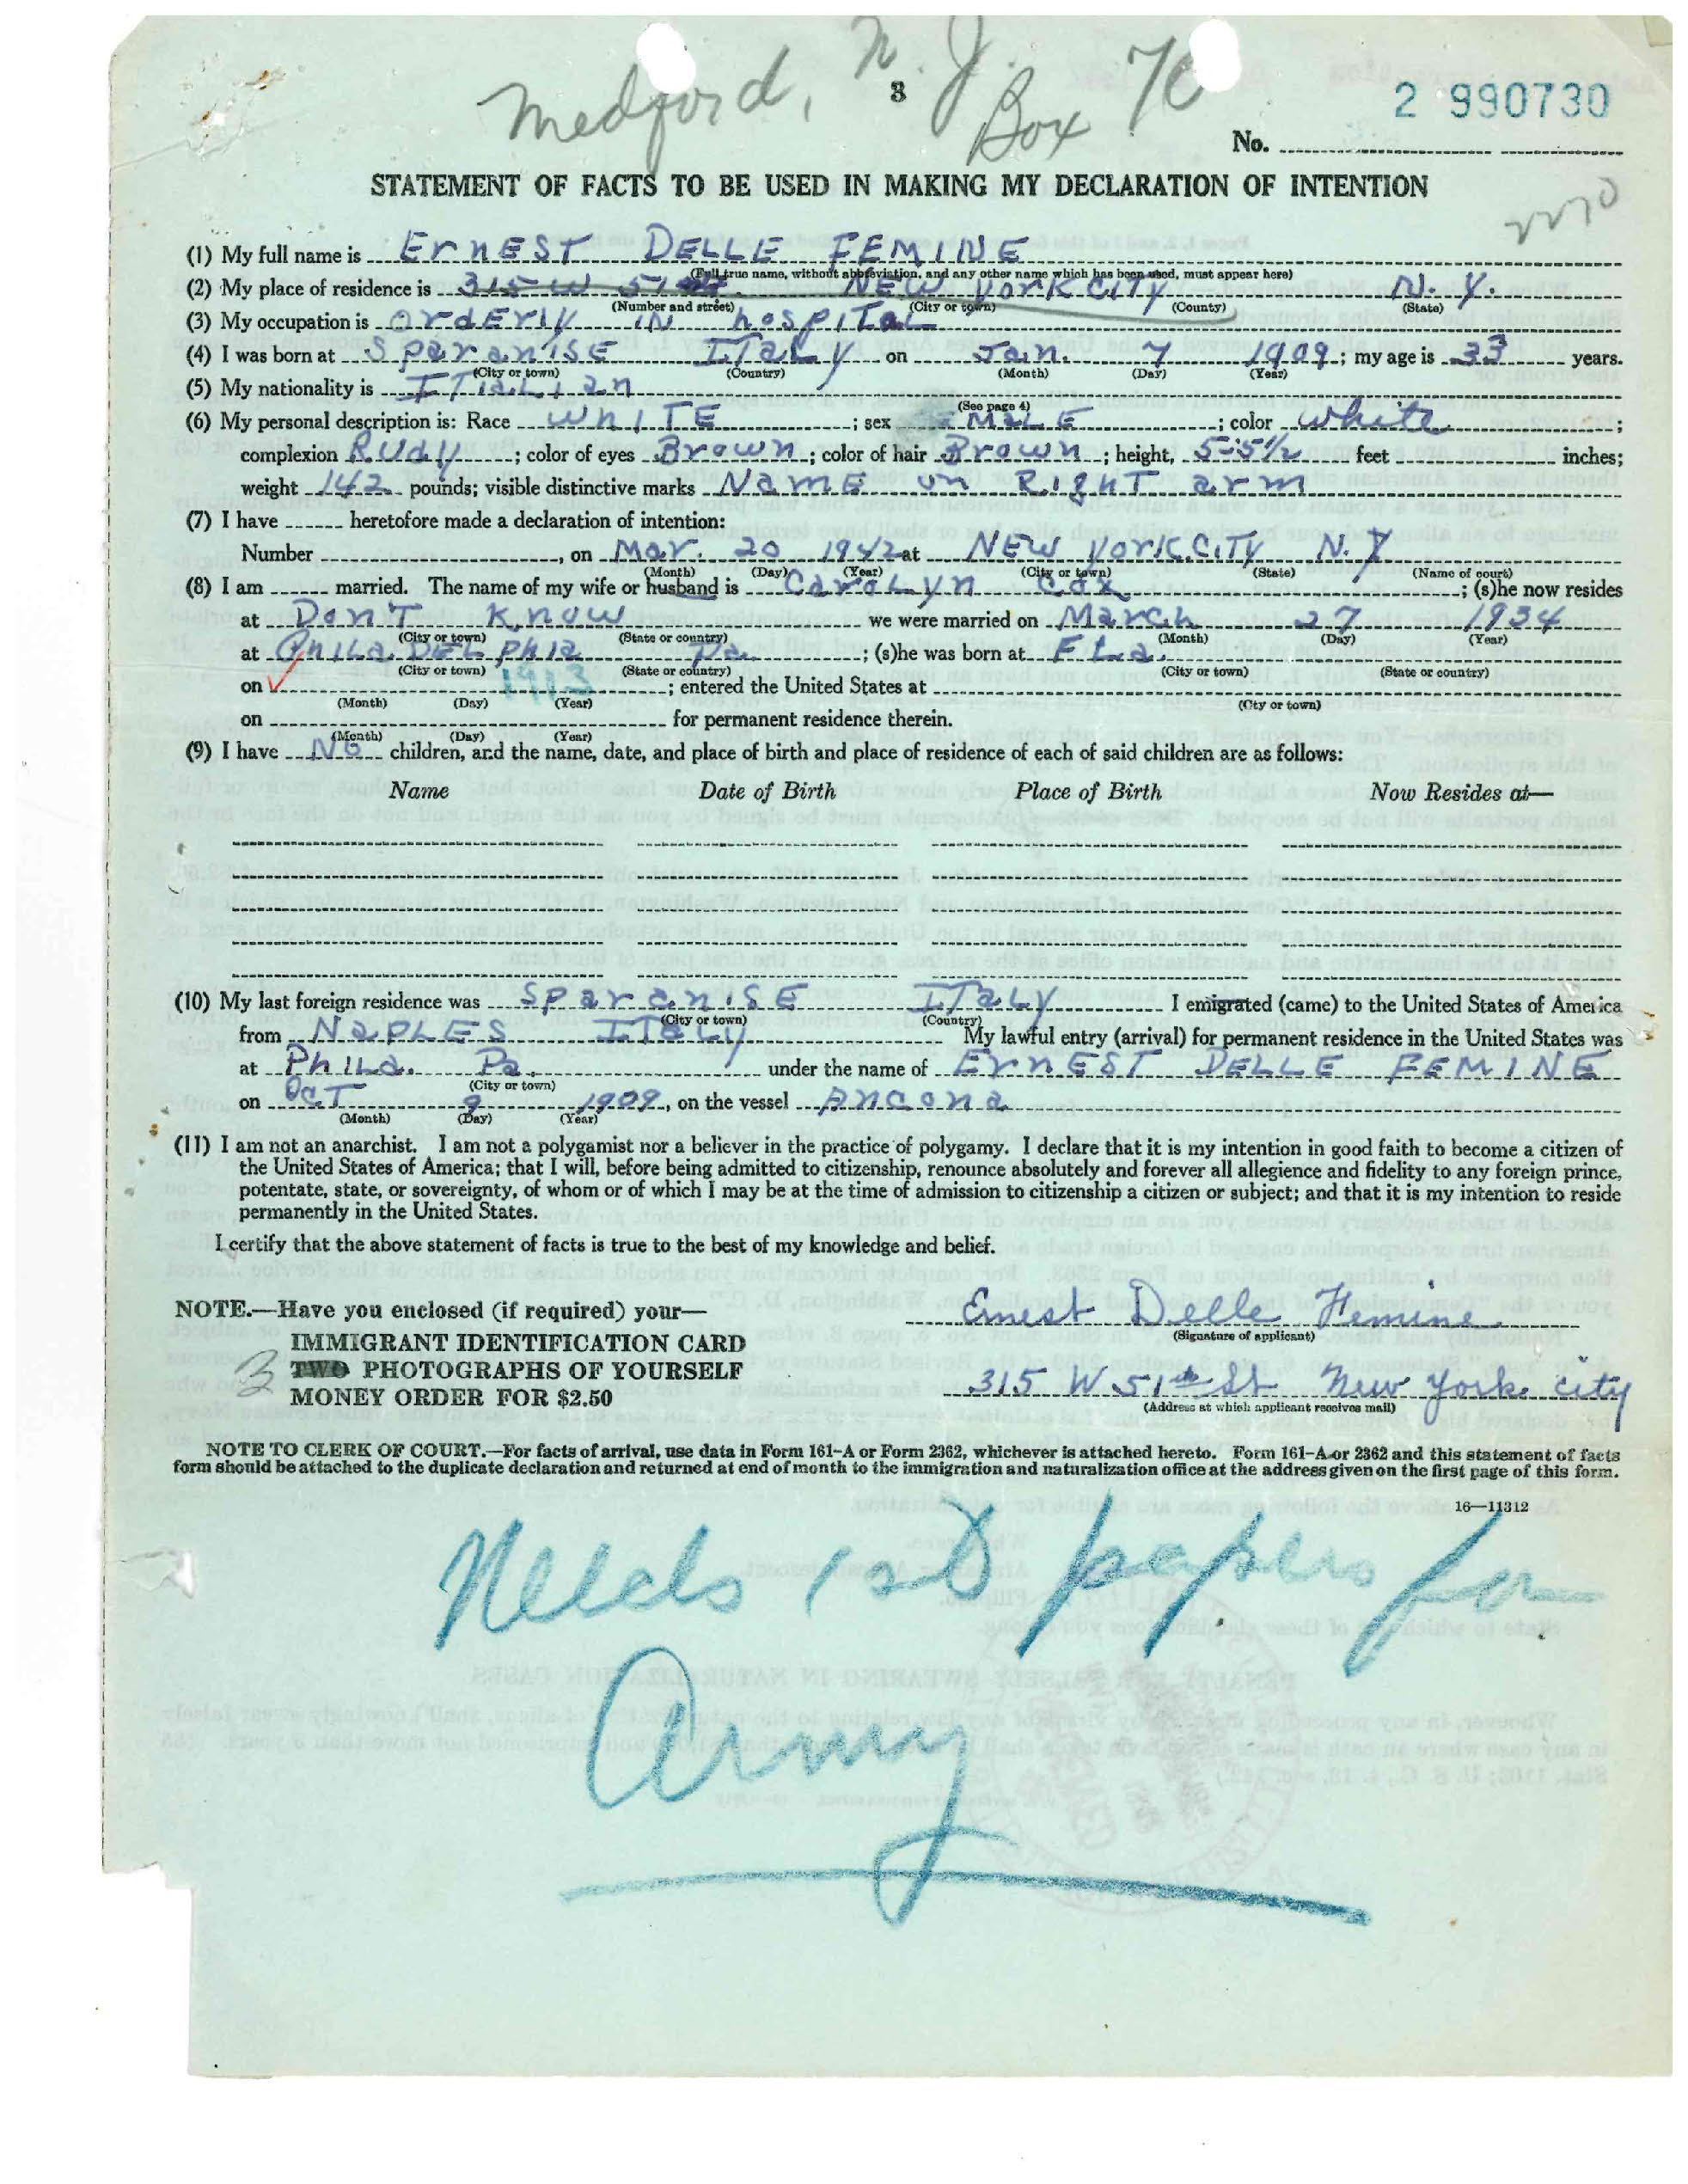 Medford, N. J.
Box 70
3
2 990730
No.
STATEMENT OF FACTS TO BE USED IN MAKING MY DECLARATION OF INTENTION
2270
(1) My full name is Ernest DELLE FEMINE
(Full true name, without abbreviation, and any other name which has been used, must appear here)
(2) My place of residence is 315 W 51 NEW YORK CITY N. Y.
(Number and street) (City or town) (County) (State)
(3) My occupation is Orderly in hospital
(4) I was born at Sparanise Italy on Jan. 7 1909; my age is 33 years.
(City or town) (Country) (Month) (Day) (Year)
(5) My nationality is Italian
(See page 4)
(6) My personal description is: Race WHITE; sex MALE; color White;
complexion Rudy; color of eyes Brown; color of hair Brown; height, 5-5½ feet inches;
weight 142 pounds; visible distinctive marks Name on Right arm
(7) I have heretofore made a declaration of intention:
Number , on Mar. 20 1942 at NEW YORK CITY N. Y
(Month) (Day) (Year) (City or town) (State) (Name of court)
(8) I am married. The name of my wife or husband is Carolyn Cox; (s)he now resides
at Don't Know we were married on March 27 1934
(City or town) (State or country) (Month) (Day) (Year)
at Philadelphia Pa.; (s)he was born at Fla.
(City or town) (State or country) (City or town) (State or country)
on 1913; entered the United States at
(Month) (Day) (Year) (City or town)
on for permanent residence therein.
(Month) (Day) (Year)
(9) I have No children, and the name, date, and place of birth and place of residence of each of said children are as follows:
Name Date of Birth Place of Birth Now Resides at—
(10) My last foreign residence was Sparanise Italy I emigrated (came) to the United States of America
(City or town) (Country)
from Naples Italy My lawful entry (arrival) for permanent residence in the United States was
at Phila. Pa. under the name of Ernest DELLE FEMINE
(City or town)
on Oct 9 1909, on the vessel Ancona
(Month) (Day) (Year)
(11) I am not an anarchist. I am not a polygamist nor a believer in the practice of polygamy. I declare that it is my intention in good faith to become a citizen of
the United States of America; that I will, before being admitted to citizenship, renounce absolutely and forever all allegience and fidelity to any foreign prince,
potentate, state, or sovereignty, of whom or of which I may be at the time of admission to citizenship a citizen or subject; and that it is my intention to reside
permanently in the United States.
I certify that the above statement of facts is true to the best of my knowledge and belief.
NOTE.—Have you enclosed (if required) your—
IMMIGRANT IDENTIFICATION CARD
3 TWO PHOTOGRAPHS OF YOURSELF
MONEY ORDER FOR $2.50
Ernest Delle Femine
(Signature of applicant)
315 W 51st St New York City
(Address at which applicant receives mail)
NOTE TO CLERK OF COURT.—For facts of arrival, use data in Form 161-A or Form 2362, whichever is attached hereto. Form 161-A or 2362 and this statement of facts
form should be attached to the duplicate declaration and returned at end of month to the immigration and naturalization office at the address given on the first page of this form.
16—11312
Needs 1st papers for
Army